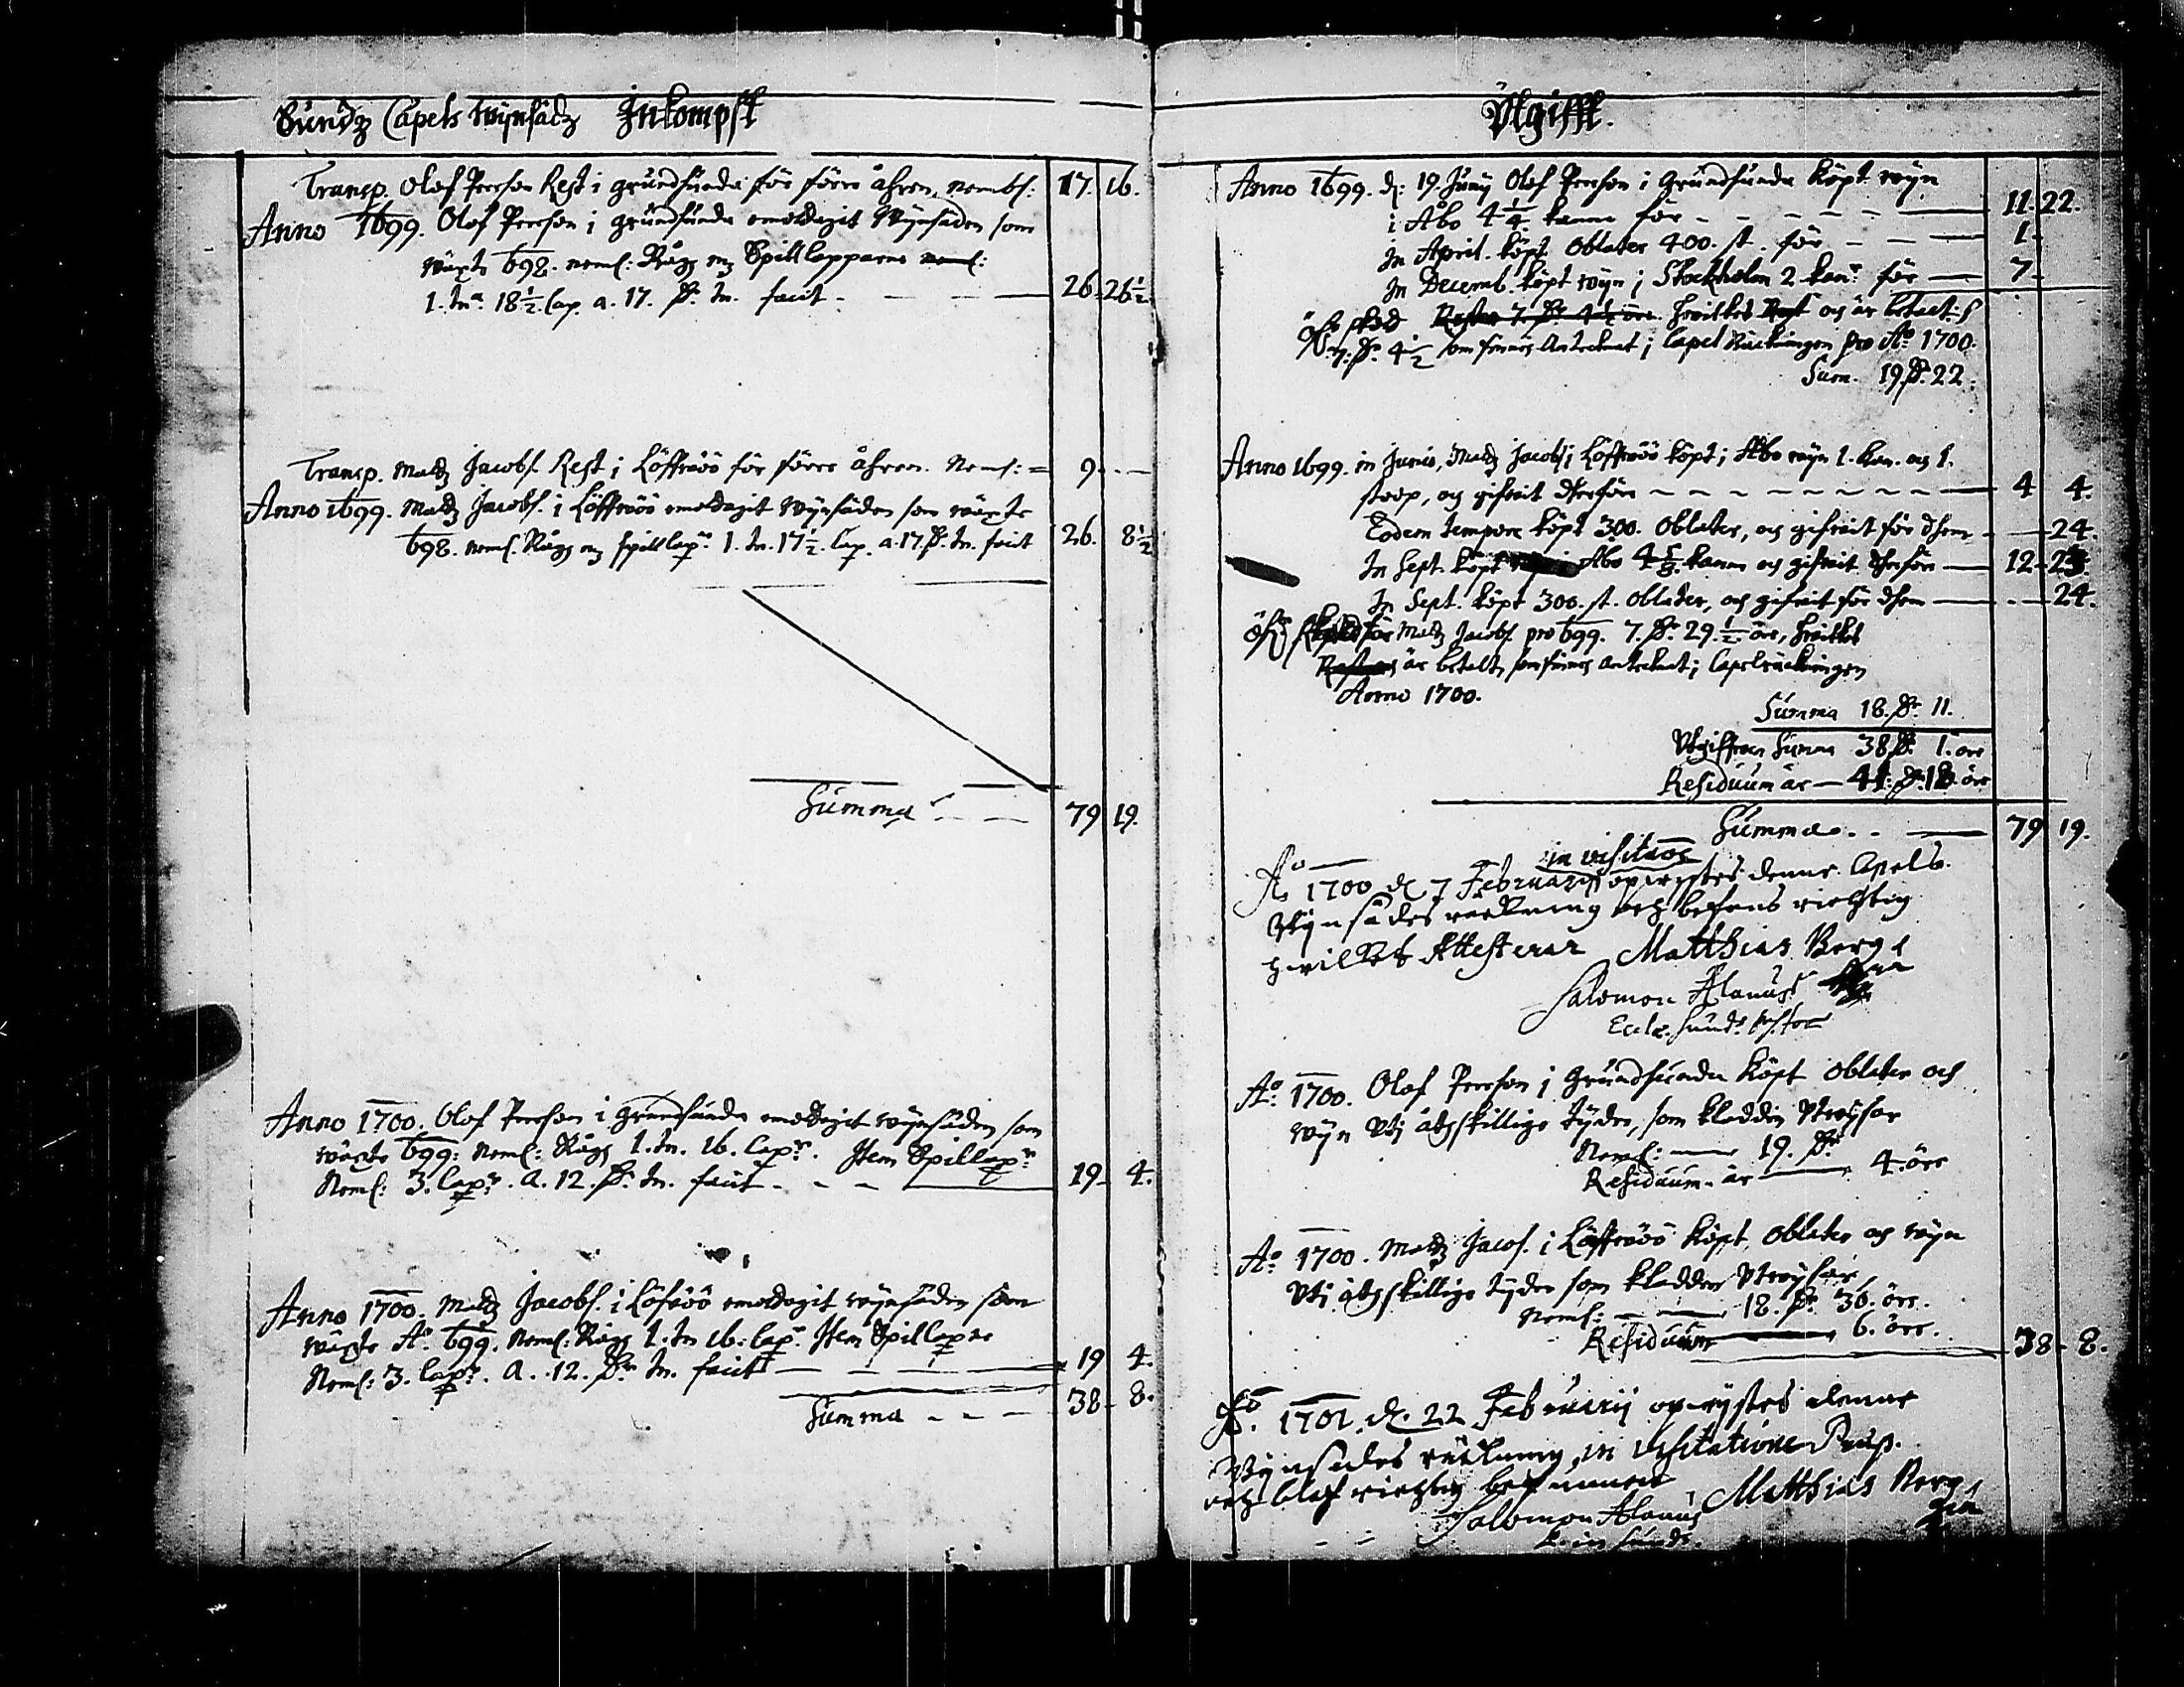 Sundz Capels Wÿnsädz Inkompst
Transp. Olof Persson Rest i grundsunda för förre åhren, nembl: 17. 16.
Anno 1699. Olof Persson i grundsunda emottagit Wÿnsäden som
wäxte 698. neml: Rågh Spillcapparne
1. tn. 18½. cap. a. 17. dr. tn. facit - - - 26. 26½.
Transp. Matz Jacobs. Rest i Löffwöö för förre åhren. Neml: = 9. - -
Anno 1699. Matz Jacobs. i Löffwöö emottagit Wÿnsäden som wäxte
698. neml. Rågh spillcapr. 1. tn. 17½. Cap. a. 17. dr. tn. facit 26. 8½
Summa - - 79 19.
Anno 1700. Olof Persson i grundsunda emottagit wÿnsäden som
wäxte 699: Neml: Rågh 1. tn. 16. Capr. Item Spillcapr
Neml: 3. Capr. a. 12. dr. tn. facit - - - 19 4.
Anno 1700. Matz Jacobs. i Löfwöö emottagit wÿnsäden som
wäxte Ao. 699. Neml: Rågh 1. tn 16. Capr Item Spillcapr
Neml: 3. Capr. a. 12. dr tn. facit - - 19 4.
Summa - - - 38 8.
Vtgifft.
Anno 1699. d: 19. Junij Olof Persson i Grundsunda köpt wÿn
i Åbo 4¼. kanna för - - - - - 11. 22.
In April. köpt Oblater 400. st. för - - 1 -
In Decemb. köpt wÿn i Stockholm 2 kanr för 7 -
Restar 7. dr 4½ öre. hwilket och är betalt
7. dr. 4½ som finnes Antecknat i Capel Räckningen pro Ao. 1700.
Sum. 19. dr. 22.
Anno 1699. in Junio, Matz Jacobs i Löffwöö köpt i Åbo wÿn 1. kan. och 1.
stoop, och gifwit derföre - - - - - - - - 4 4.
Eodem tempore köpt 300. Oblater, och gifwit för dhem - 24.
In Sept. köpt Åbo 4⅝. kanna och gifwit derföre 12 - 23
In Sept. köpt 300. st. Oblater, och gifwit för dhem - - 24.
Matz Jacobs. pro 699. 7. dr. 29.½ öre, hwilket
är betalt, som finnes antecknat i Capelräckningen
Anno 1700.
Summa 18. dr. 11.
Vtgifften Summa 38 dr. 1. öre
Residuum är - 41. dr. 18. öre
Summa - - 79 19.
in visitaōe
Ao 1700 d 7 Februarij opwÿstes denne Capels.
Wÿnsädes räckning och befans richtig
hwilket Attesterar Matthias Berg
Salomon Alanus
Eccles. Sund. Pastor
Ao. 1700. Olof Persson i Grundsunda köpt Oblater och
wÿn vtj åthskillige tÿder, som kladden vtwÿsar
Neml: - 19. dr
Residuum är - 4. öre
Ao. 1700. Matz Jacos. i Löffwöö köpt oblater och wÿn
vtj åthskillige tÿder som kladden vtwÿsar
Neml: - - 18. dr 30. öre.
Residuum - 6. öre. 38 - 8.
Ao. 1701. d. 22 Februarij opwÿstes denne
Wÿnsädes räckning, in Visitatione
och blef richtig befunnen
Salomon Alanus Matthias Berg
P. in Sund.